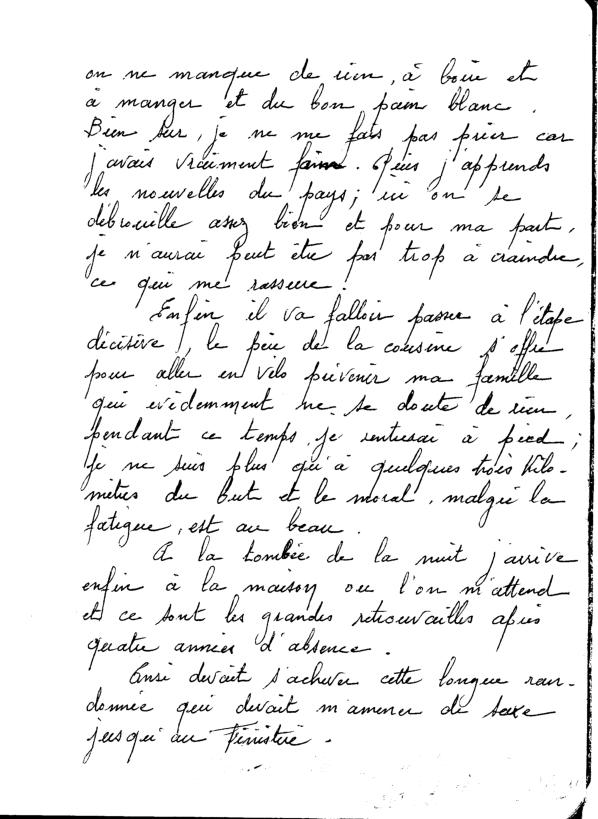 on ne manque de rien, à boire et
à manger et du bon pain blanc.
Bien sur, je ne me fais pas prier car
j'avais vraiment faim. Puis j'apprends
les nouvelles du pays; ici on se
débrouille assez bien et pour ma part,
je n'aurai peut être pas trop à craindre,
ce qui me rassure.
Enfin il va falloir passer à l'étape
décisive, le père de la cousine s'offre
pour aller en vélo prévenir ma famille
qui evidemment ne se doute de rien,
pendant ce temps je rentrerai à pied;
je ne suis plus qu'à quelques trois kilo-
mètres du but et le moral, malgré la
fatigue, est au beau.
A la tombée de la nuit j'arrive
enfin à la maison ou l'on m'attend
et ce sont les grandes retrouvailles après
quatre années d'absence.
Ainsi devait s'achever cette longue ran-
donnée qui devait m'amener de saxe
jusqu'au Finistère.